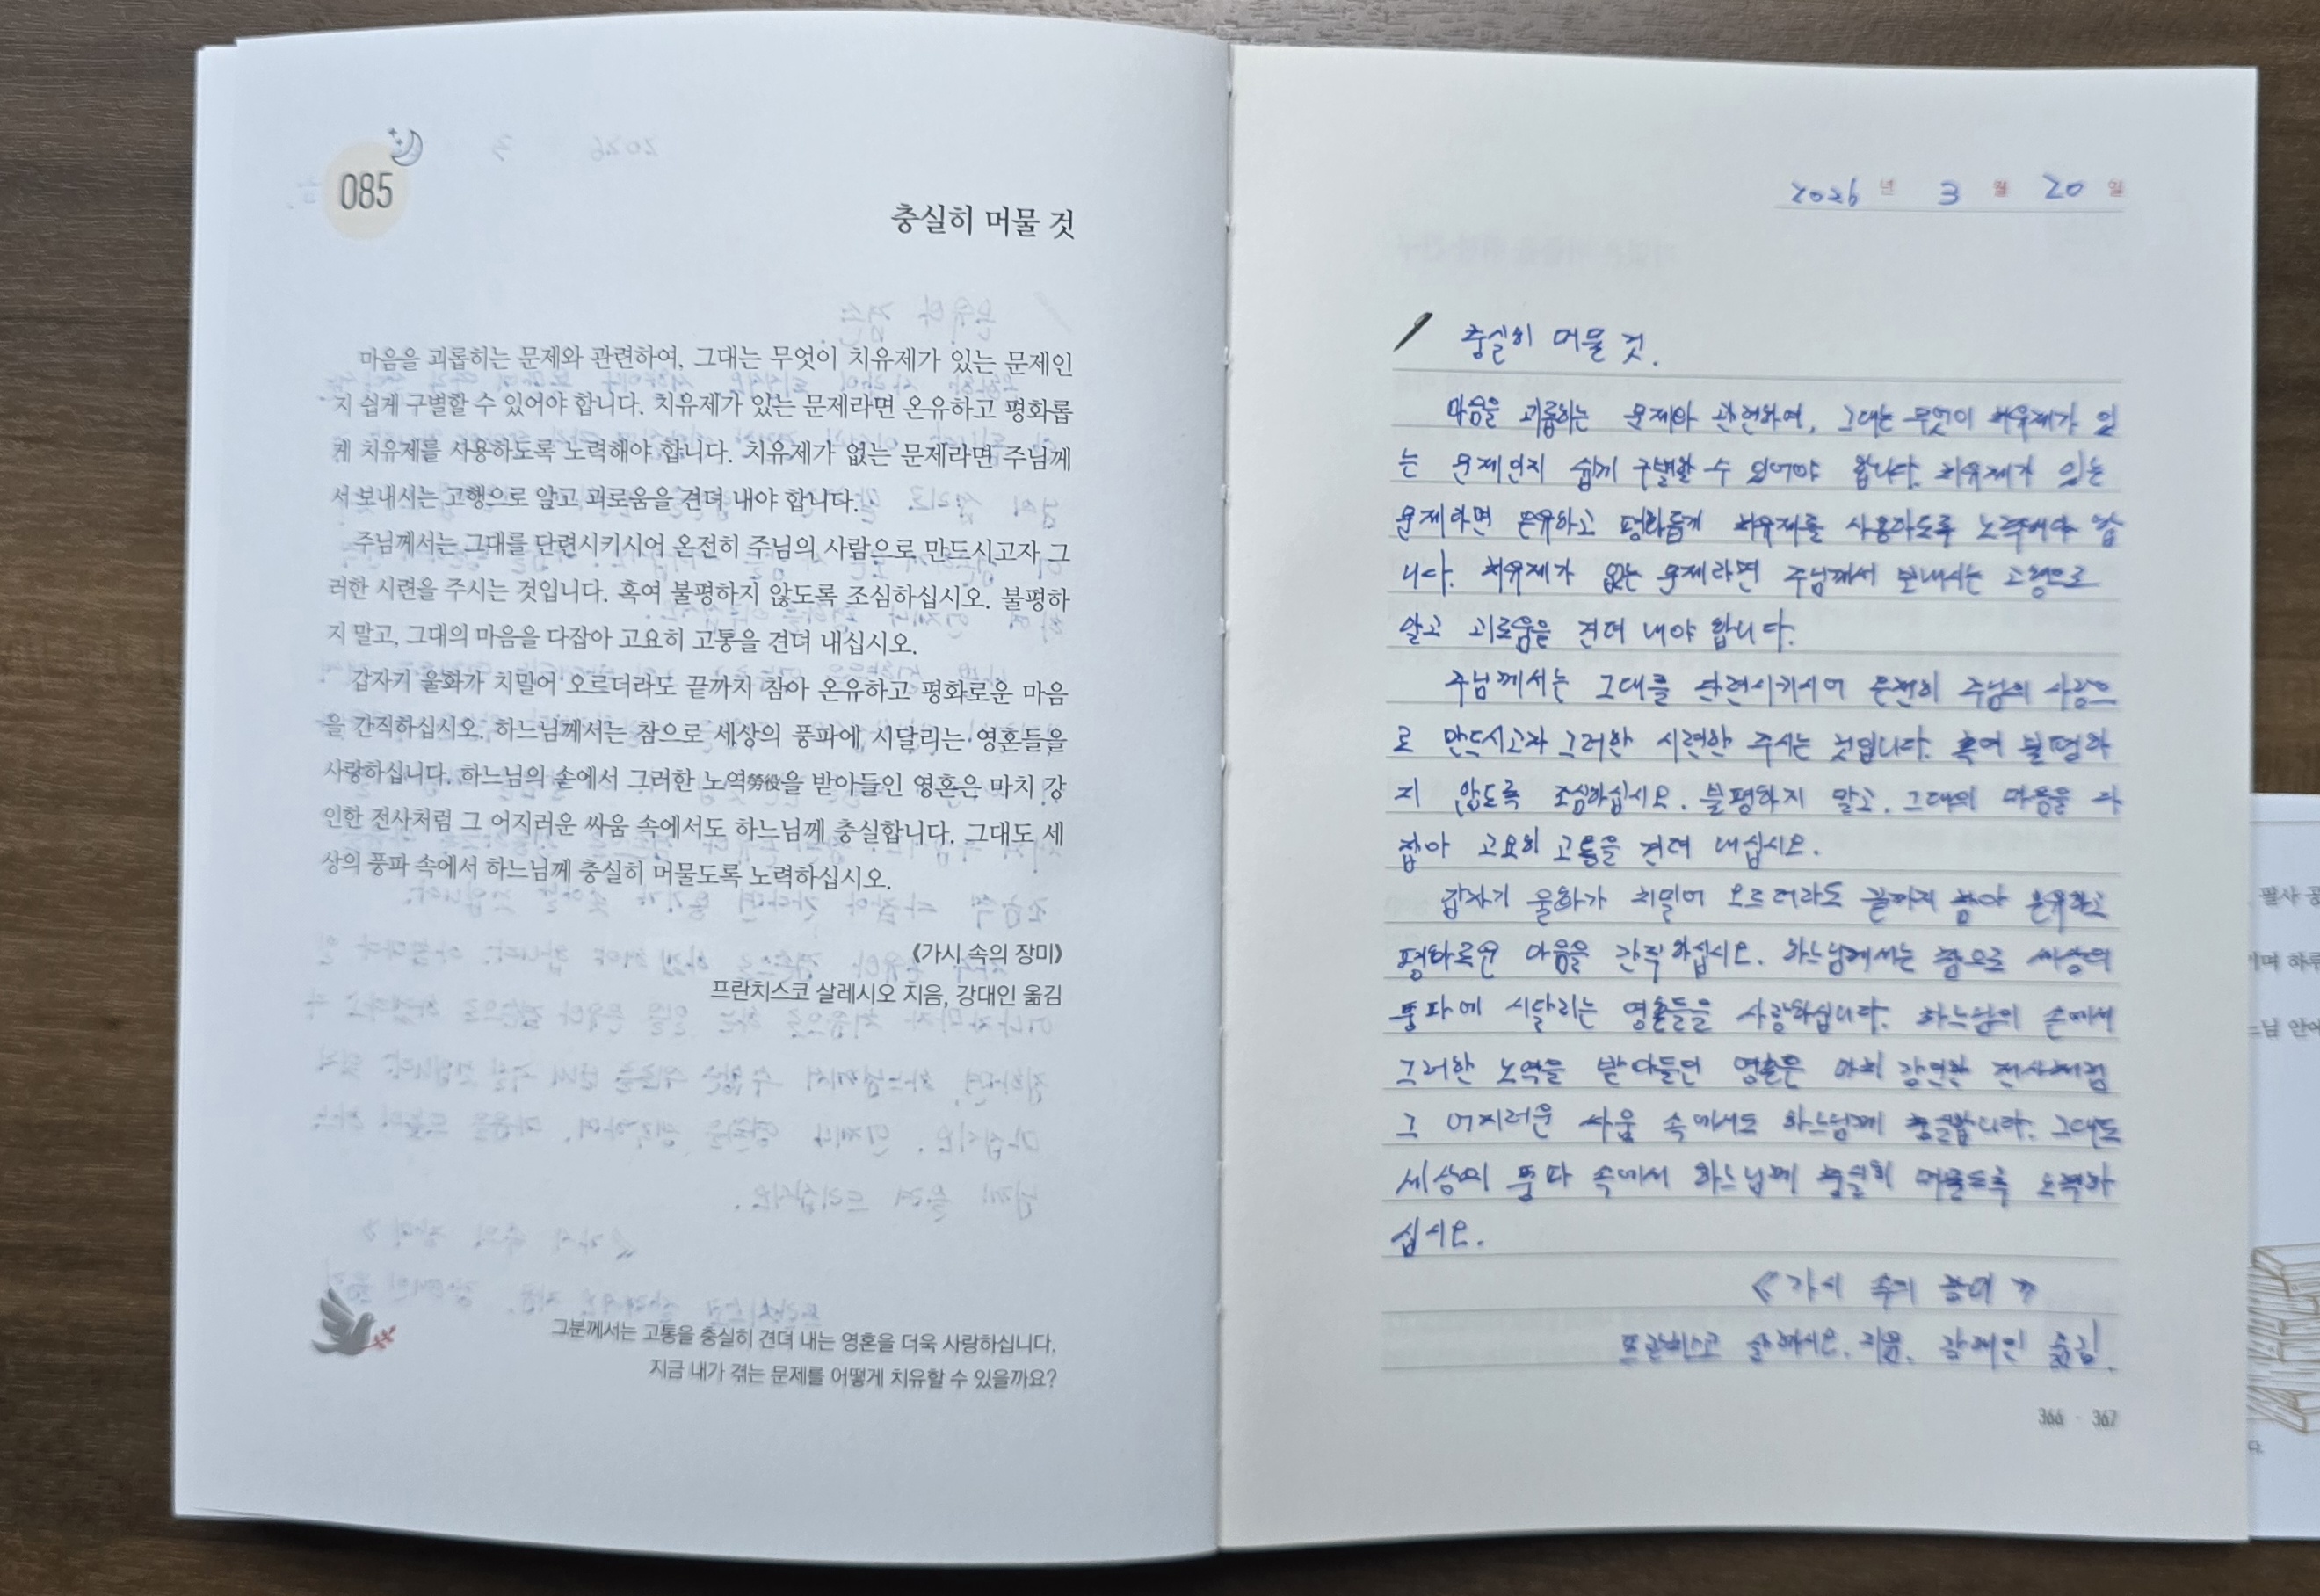 085
충실히 머물 것
마음을 괴롭히는 문제와 관련하여, 그대는 무엇이 치유제가 있는 문제인
지 쉽게 구별할 수 있어야 합니다. 치유제가 있는 문제라면 온유하고 평화롭
게 치유제를 사용하도록 노력해야 합니다. 치유제가 없는 문제라면 주님께
서 보내시는 고행으로 알고 괴로움을 견뎌 내야 합니다.
주님께서는 그대를 단련시키시어 온전히 주님의 사람으로 만드시고자 그
러한 시련을 주시는 것입니다. 혹여 불평하지 않도록 조심하십시오. 불평하
지 말고, 그대의 마음을 다잡아 고요히 고통을 견뎌 내십시오.
갑자기 울화가 치밀어 오르더라도 끝까지 참아 온유하고 평화로운 마음
을 간직하십시오. 하느님께서는 참으로 세상의 풍파에 시달리는 영혼들을
사랑하십니다. 하느님의 손에서 그러한 노역勞役을 받아들인 영혼은 마치 강
인한 전사처럼 그 어지러운 싸움 속에서도 하느님께 충실합니다. 그대도 세
상의 풍파 속에서 하느님께 충실히 머물도록 노력하십시오.
《가시 속의 장미》
프란치스코 살레시오 지음, 강대인 옮김
그분께서는 고통을 충실히 견뎌 내는 영혼을 더욱 사랑하십니다.
지금 내가 겪는 문제를 어떻게 치유할 수 있을까요?
2026 년 3 월 20 일
충실히 머물 것.
마음을 괴롭히는 문제와 관련하여, 그대는 무엇이 치유제가 있
는 문제인지 쉽게 구별할 수 있어야 합니다. 치유제가 있는
문제라면 온유하고 평화롭게 치유제를 사용하도록 노력해야 합
니다. 치유제가 없는 문제라면 주님께서 보내시는 고행으로
알고 괴로움을 견뎌 내야 합니다.
주님께서는 그대를 단련시키시어 온전히 주님의 사람으
로 만드시고자 그러한 시련한 주시는 것입니다. 혹여 불평하
지 않도록 조심하십시오. 불평하지 말고, 그대의 마음을 다
잡아 고요히 고통을 견뎌 내십시오.
갑자기 울화가 치밀어 오르더라도 끝까지 참아 온유하고
평화로운 마음을 간직하십시오. 하느님께서는 참으로 세상의
풍파에 시달리는 영혼들을 사랑하십니다. 하느님의 손에서
그러한 노역을 받아들인 영혼은 마치 강인한 전사처럼
그 어지러운 싸움 속에서도 하느님께 충실합니다. 그대도
세상의 풍파 속에서 하느님께 충실히 머물도록 노력하
십시오.
《가시 속의 장미》
프란치스코 살레시오. 지음. 강대인 옮김.
366 · 367
필사
하루
느님 안에
다.